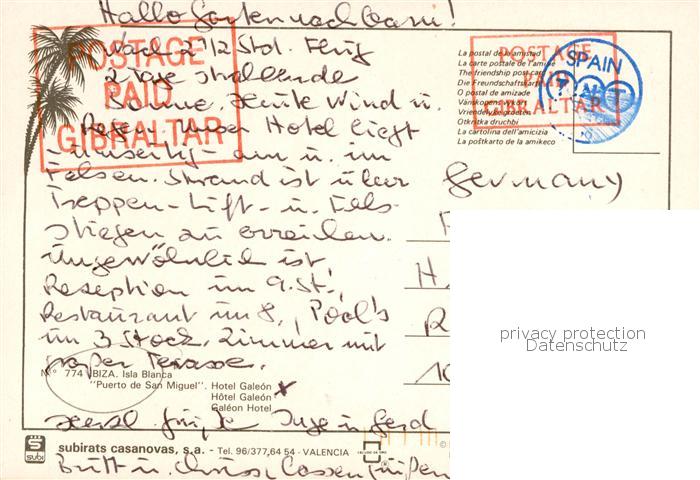 Hallo Gartennachbarn!
Nach 2 1/2 Std. Flug
2 Tage strahlende
Sonne. Heute Wind u.
Regen. Unser Hotel liegt
einseitig am u. im
Felsen. Strand ist über
Treppen - Lift - u. Fels-
stiegen zu erreichen.
Ungewöhnlich ist
Reception im 9. St.,
Restaurant im 8., Pool's
im 3 Stock. Zimmer mit
großer Terasse.
POSTAGE
PAID
GIBRALTAR
La postal de la amistad
La carte postale de l'amitié
The friendship post card
Die Freundschaftskarte
O postal de amizade
Vänskapens vykort
Vriendelijke groeten
Otkritka druchbi
La cartolina dell'amicizia
La poŝtkarto de la amikeco
POSTAGE
PAID
GIBRALTAR
SPAIN
Germany
privacy protection
Datenschutz
N° 774 IBIZA. Isla Blanca
"Puerto de San Miguel". Hotel Galeón x
Hôtel Galeón
Galéon Hotel
Herzl. Grüße Inge u. Gerd
subi
subirats casanovas, s.a. - Tel. 96/377,64 54 - VALENCIA
Britt u. lassen grüßen